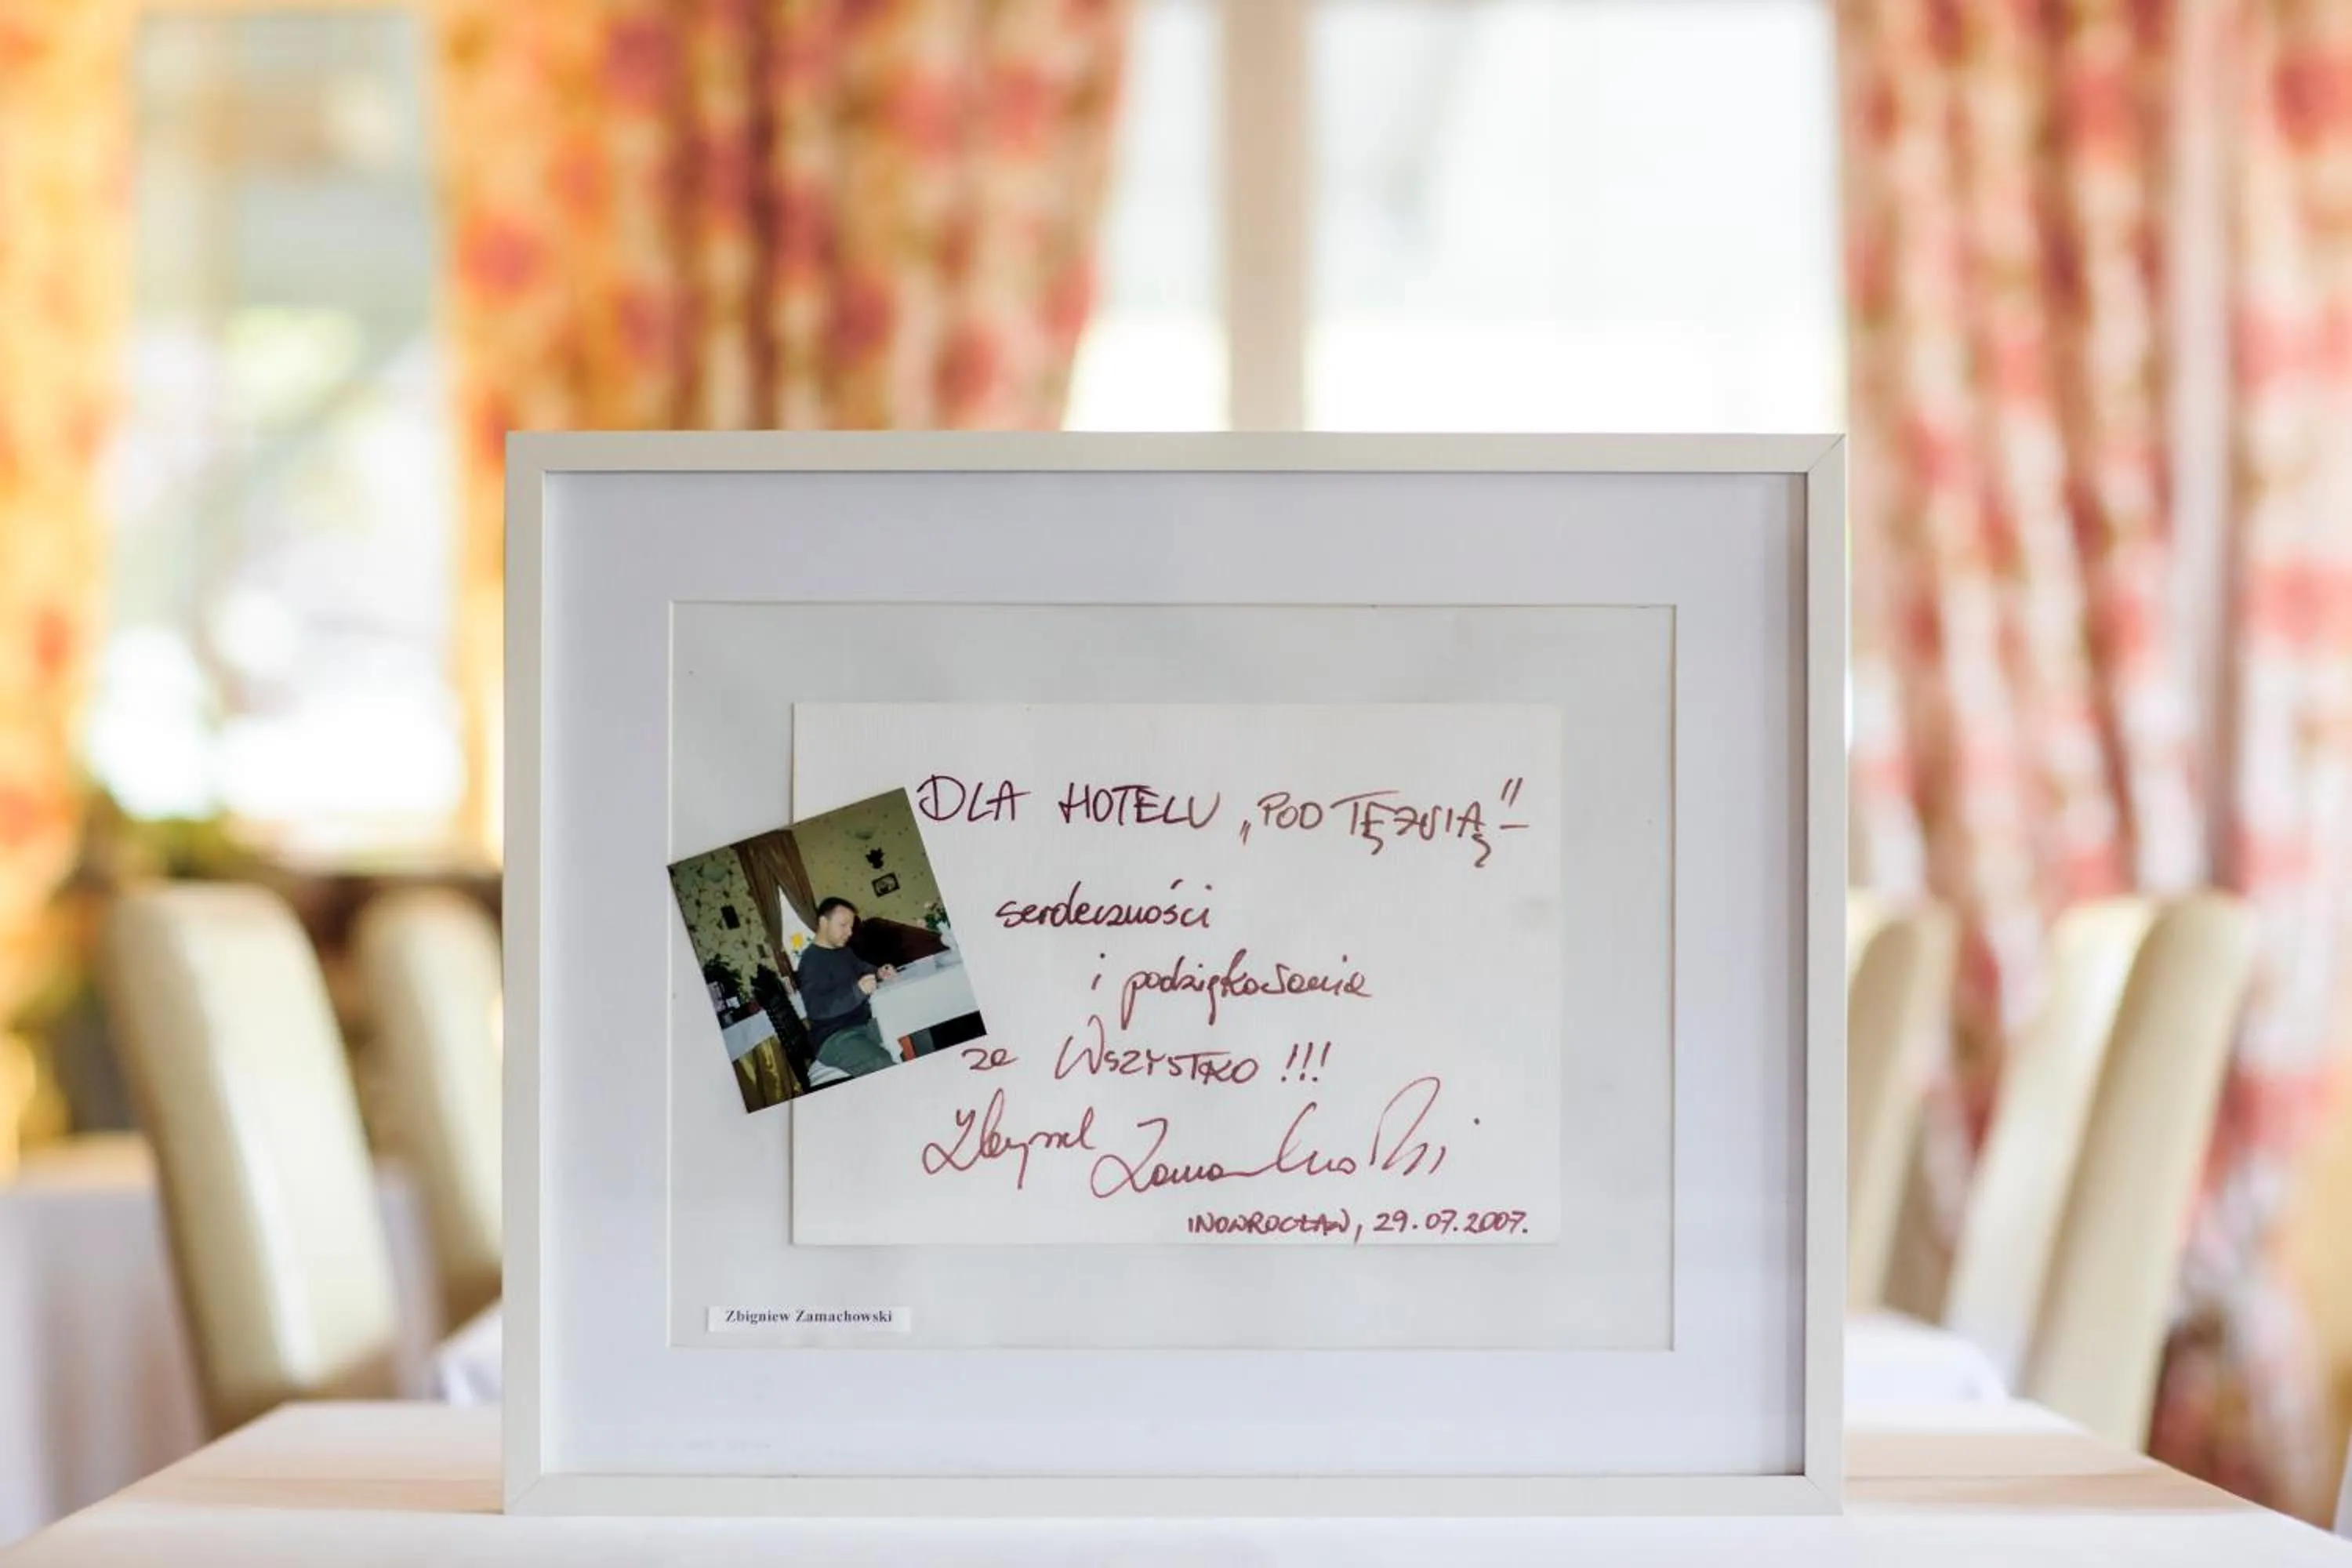 DLA HOTELU „POD TĘŻNIĄ" –
serdeczności
i podziękowania
za WSZYSTKO !!!
Zbigniew Zamachowski
INOWROCŁAW, 29.07.2007.
Zbigniew Zamachowski